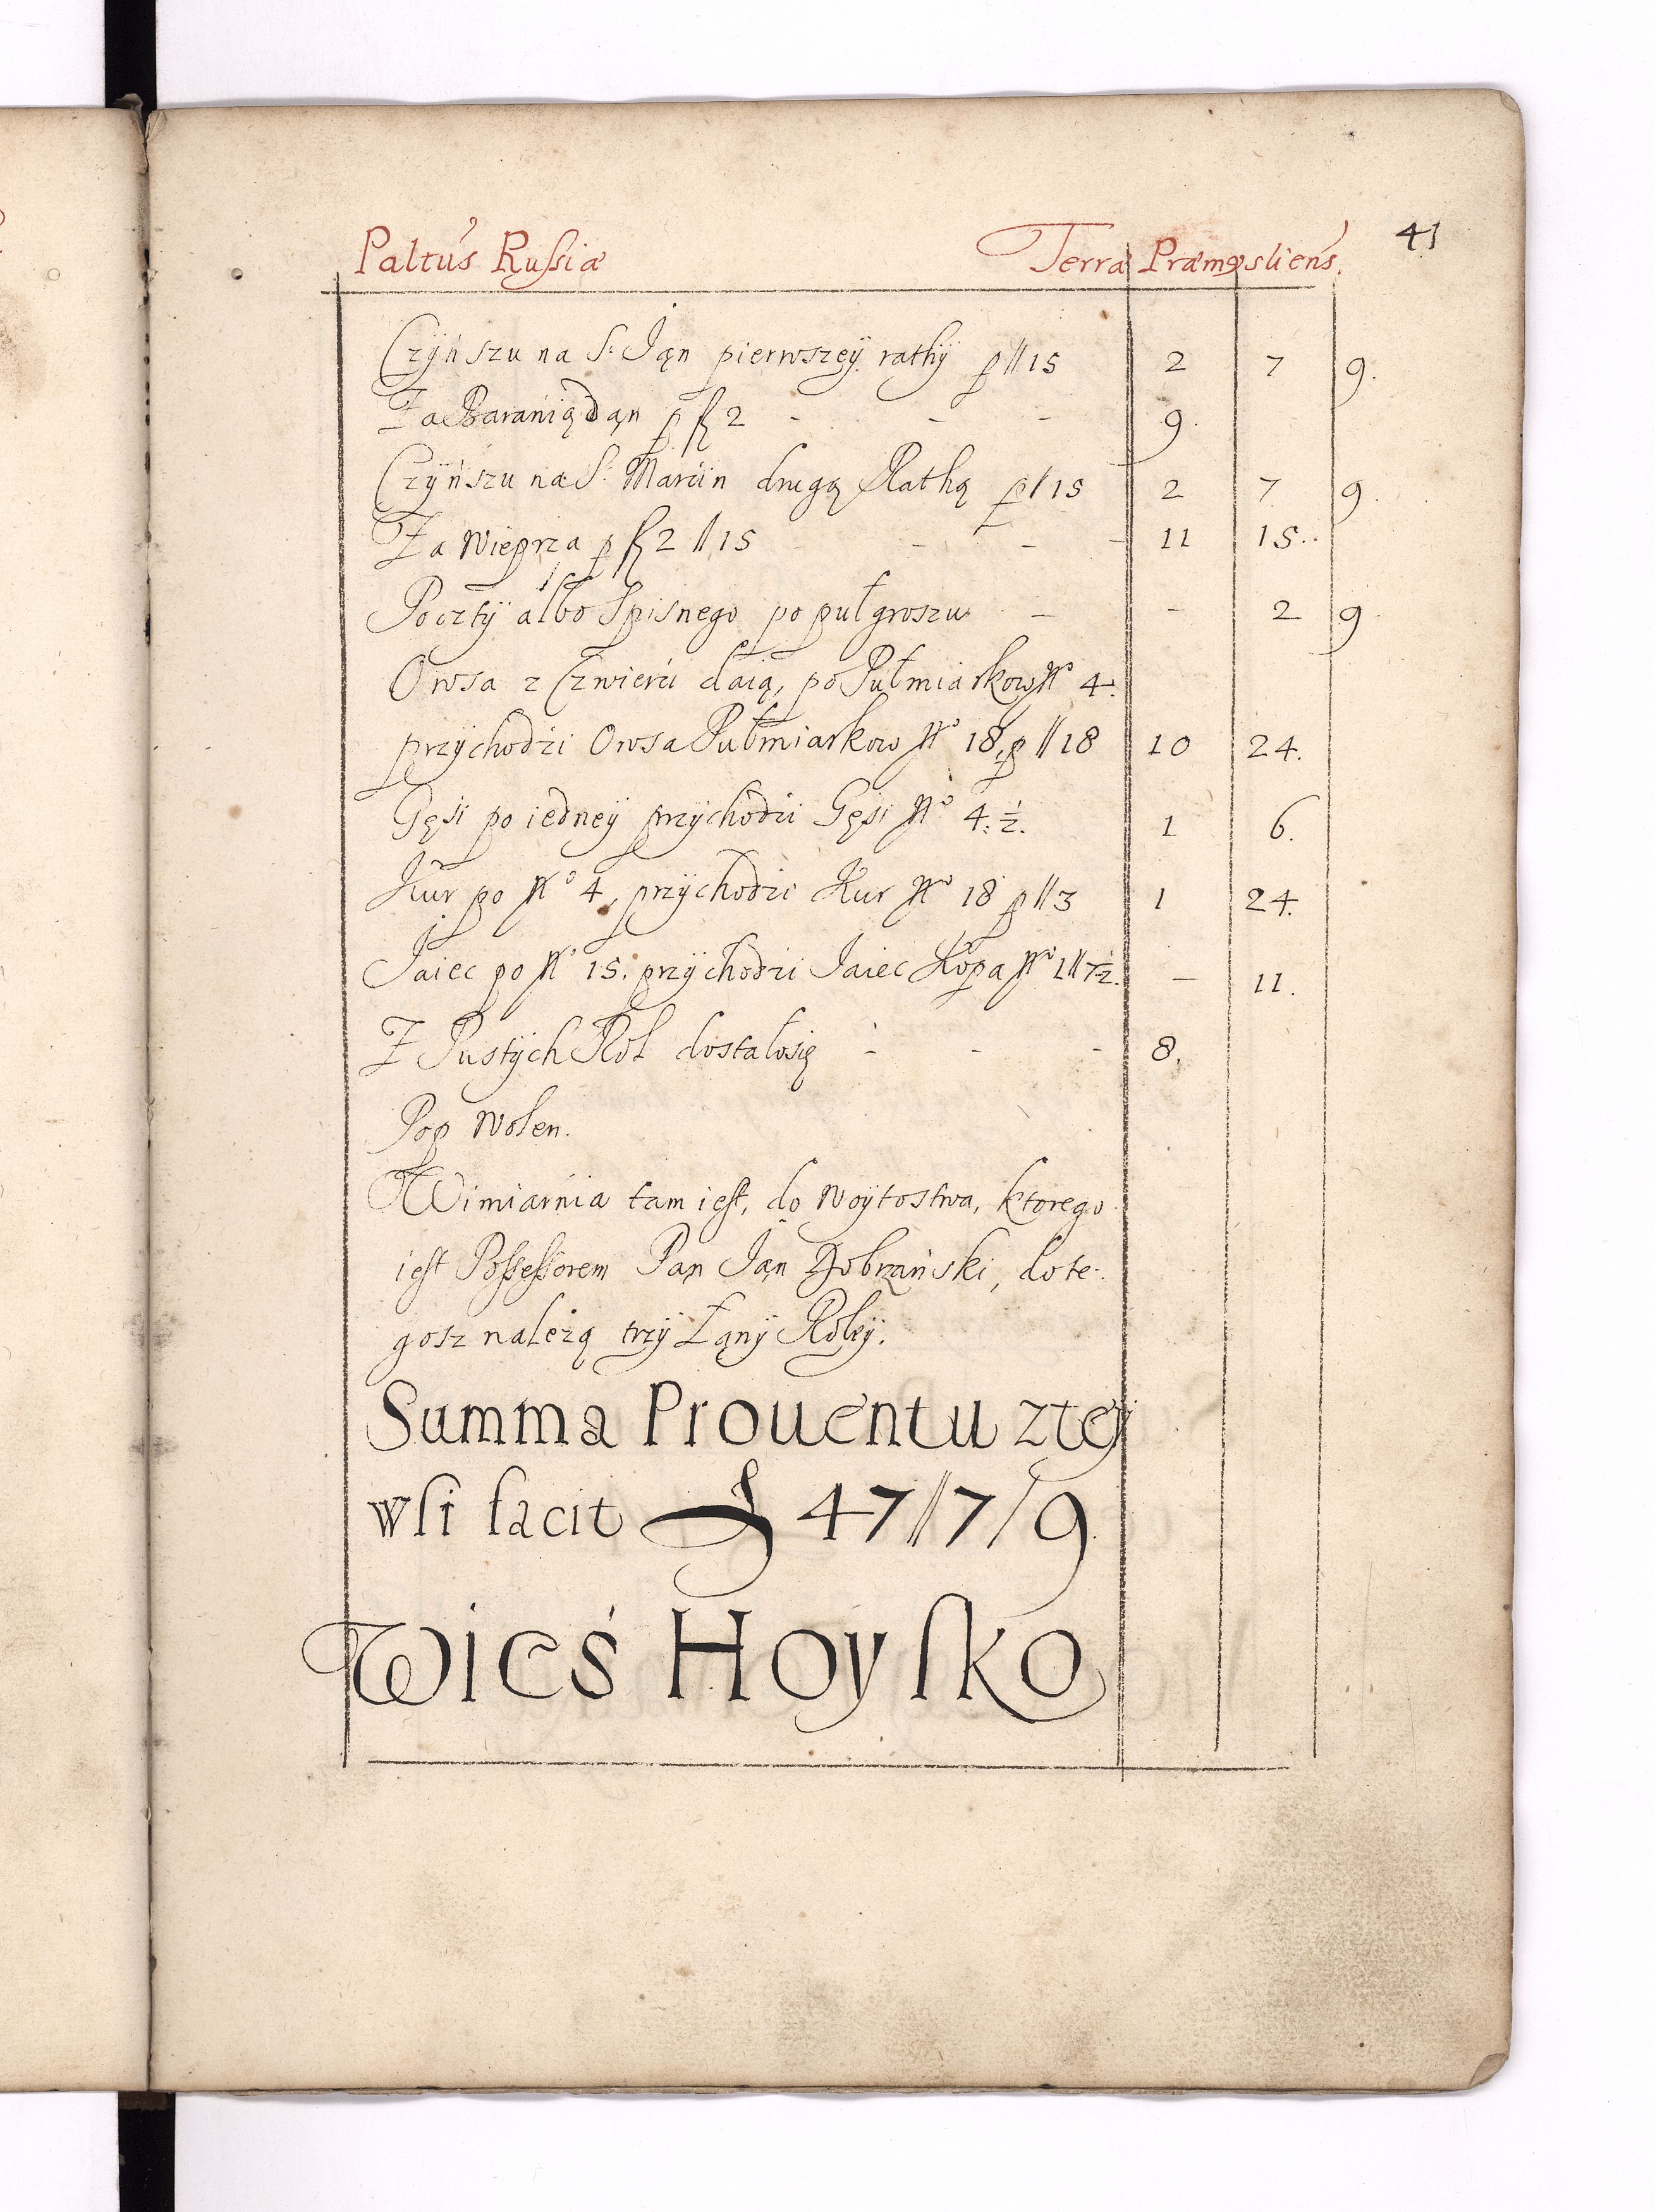 Paltus Russiæ Terræ Præmysliens. 41
Czÿńszu na S. Ian pierwszeÿ rathÿ p // 15 2 7 9.
Za Baranią dan p fl 2 - - - 9.
Czÿńszu na S: Marcin drugą Rathą p // 15 2 7 9.
Za Wieprza p fl 2 // 15 - - - 11 15..
Pocztÿ albo Spisnego po pułgroszu - - 2 9.
Owsa z Czwierci daią, po Pułmiarkow Nº 4.
przÿchodzi Owsa Pułmiarkow Nº 18, p // 18 10 24.
Gęsi po iedneÿ przÿchodzi Gęsi Nº 4. ½. 1 6.
Kur po Nº 4, przÿchodzi Kur Nº 18 p // 3 1 24.
Iaiec po Nº 15. przÿchodzi Iaiec Kopa Nº 1 // 7½. - 11.
Z Pustÿch Rol dostałosię - - - 8.
Pop Wolen.
Wimiarnia tam iest, do Woÿtostwa, ktorego
iest Possessorem Pan Ian Dobrzański, do te-
gosz należą trzÿ Łanÿ Roleÿ.
Summa Prouentu zteÿ
wsi facit f 47 // 7 / 9.
Wieś Hoysko